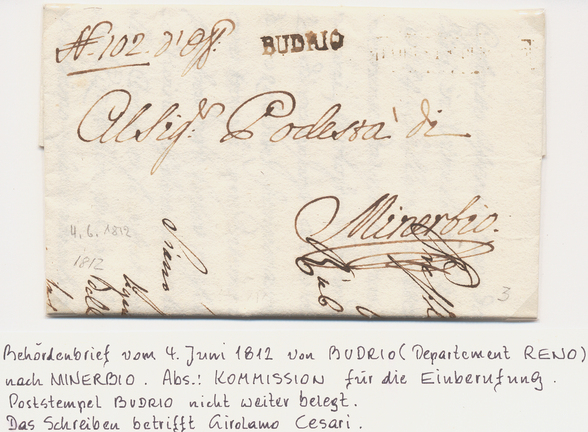 N.° 102. d'Uff.°
BUDRIO
Al Sig.r Podestà di
Minerbio.
4.6.1812
1812
3
Behördenbrief vom 4. Juni 1812 von BUDRIO (Departement RENO)
nach MINERBIO. Abs.: KOMMISSION für die Einberufung.
Poststempel BUDRIO nicht weiter belegt.
Das Schreiben betrifft Girolamo Cesari.